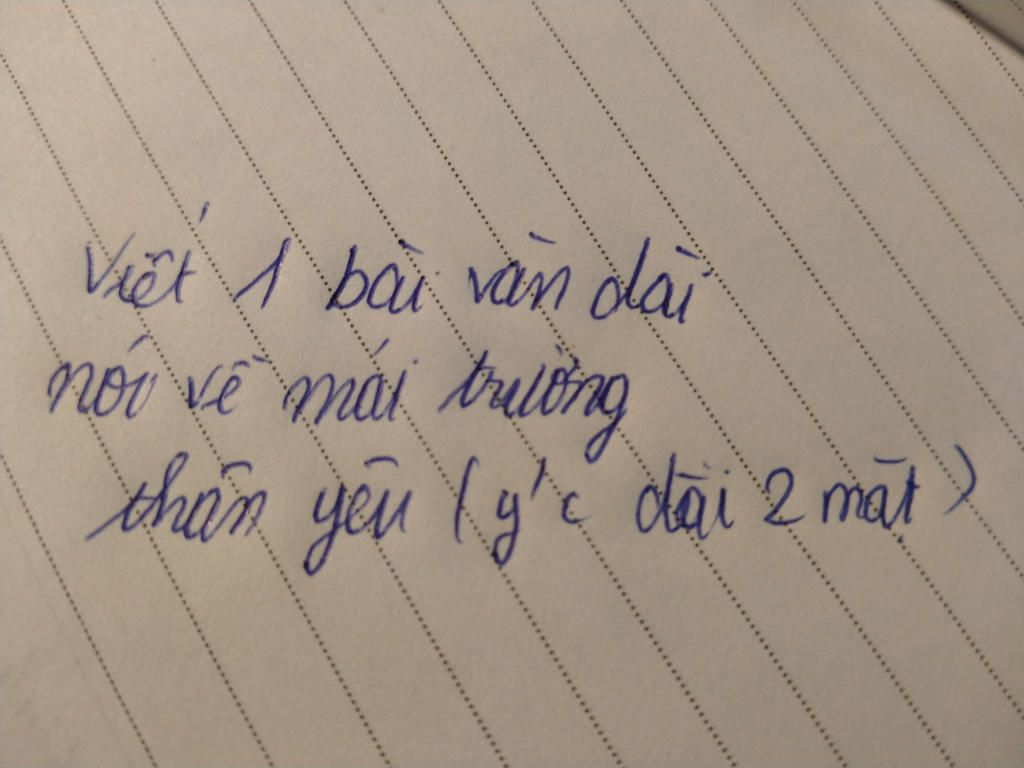 Viết 1 bài văn dài
nói về mái trường
thân yêu (y'c dài 2 mặt)